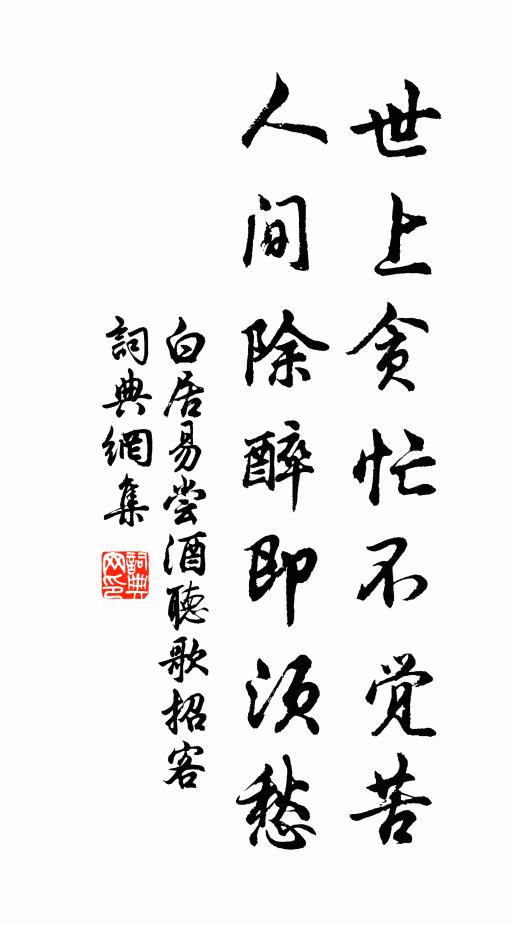 世上贪忙不觉苦
人间除醉即须愁
白居易尝酒聽歌招客
詞典網集
詞典網印